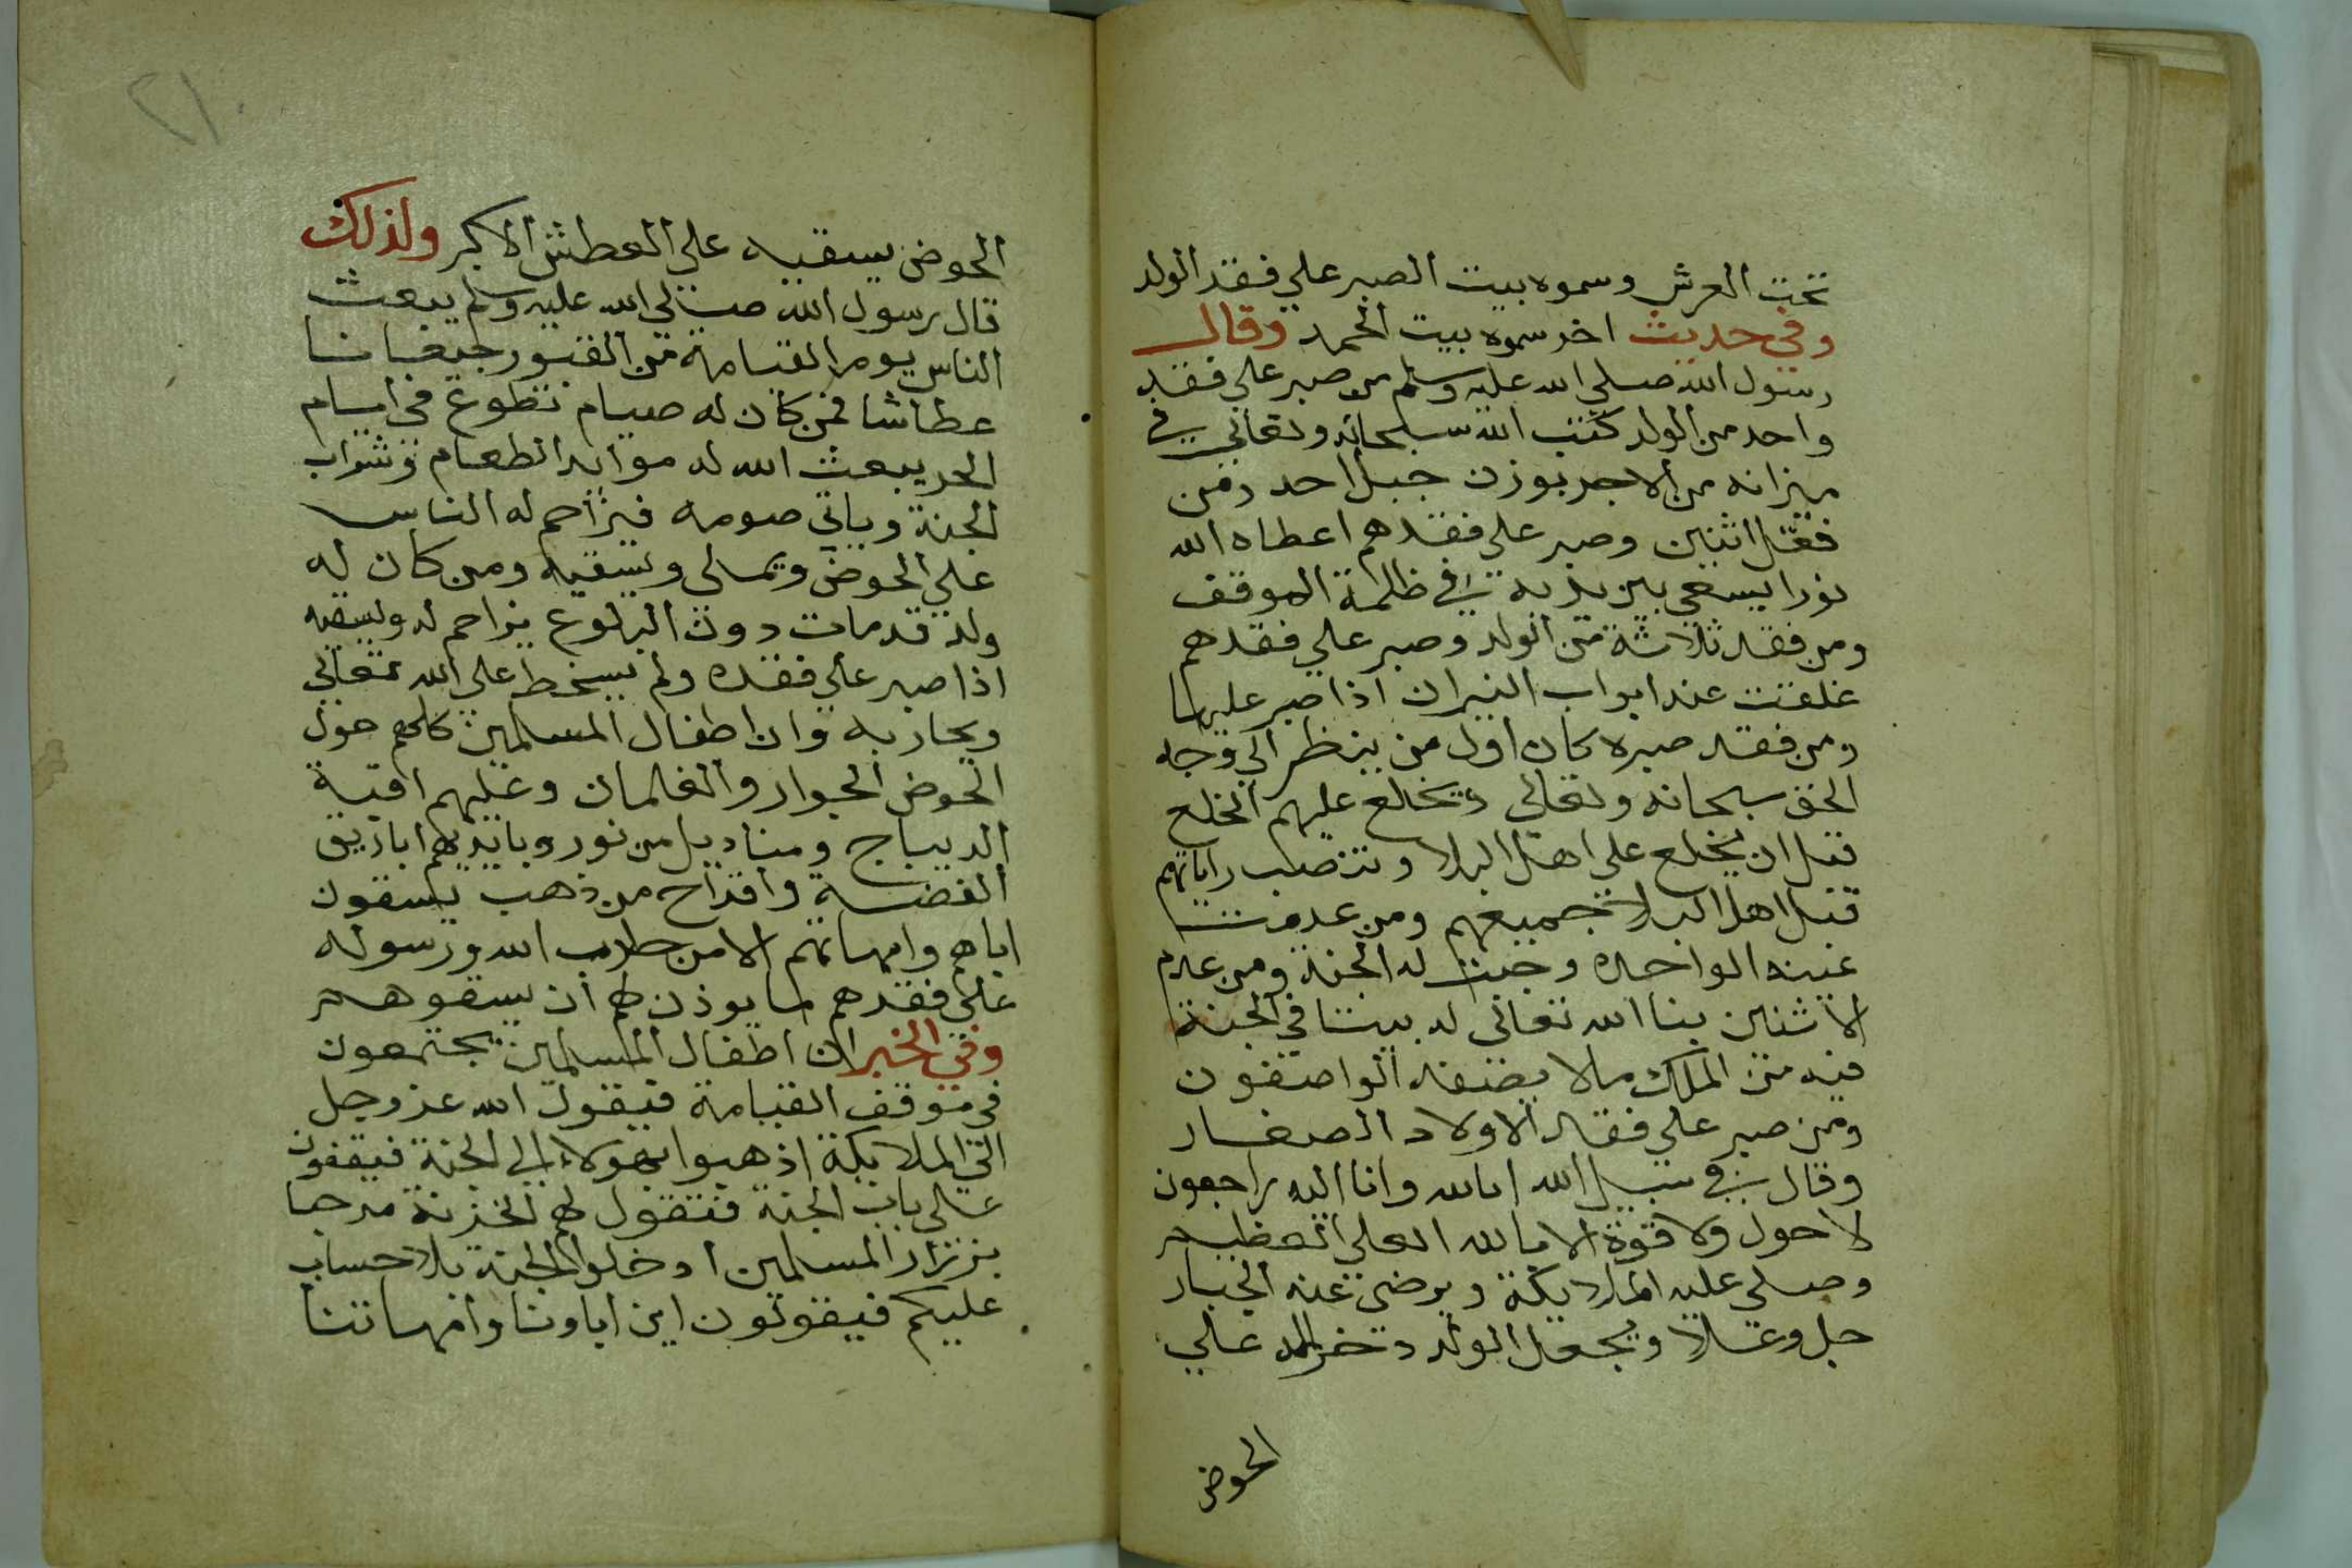 تحت العرش وسموه بيت الصبر علي فقد الولد
وفي حديث اخر سموه بيت الحمد وقال
رسول الله صلي الله عليه وسلم من صبر علي فقد
واحد من الولد كتب الله سبحانه وتعالي في
ميزانه من الاجر بوزن جبل احد ومن
فقد اثنين وصبر علي فقدهم اعطاه الله
نورا يسعي بين يديه في ظلمة الموقف
ومن فقد ثلاثة من الولد وصبر علي فقدهم
غلقت عند ابواب النيران اذا صبر عليها
ومن فقد صبره كان اول من ينظر الي وجه
الحق سبحانه وتعالي ويخلع عليهم الخلع
قبل ان يخلع علي اهل البلا وتنصب راياتهم
قبل اهل البلا جميعهم ومن عدمت
عينه الواحده وجبت له الجنة ومن عدم
الاثنين بنا الله تعالي له بيتا في الجنة
فيه من الملك مالا يصفه الواصفون
ومن صبر علي فقد الاولاد الصغار
وقال في سبيل الله انا لله وانا اليه راجعون
لا حول ولا قوة الا بالله العلي العظيم
وصلي عليه الملايكة ويرضي عنه الجبار
جل وعلا ويجعل الولد دخرا له علي
الحوض
٢١
الحوض يسقيه علي العطش الاكبر ولذلك
قال رسول الله صلي الله عليه وسلم يبعث
الناس يوم القيامة من القبور جيعانا
عطاشا فمن كان له صيام تطوع في ايام
الحر يبعث الله له موائد الطعام وشراب
الجنة وياتي صومه فيزاحم له الناس
علي الحوض ويملي ويسقيه ومن كان له
ولد قد مات دون البلوغ يزاحم له ويسقيه
اذا صبر علي فقده ولم يسخط علي الله تعالي
ويحاربه وان اطفال المسلمين كلهم حول
الحوض الجوار والغلمان وعليهم اقبية
الديباج ومناديل من نور وبايديهم اباريق
الفضة واقداح من ذهب يسقون
اباهم وامهاتهم الا من حارب الله ورسوله
علي فقدهم ما يوذن لهم ان يسقوهم
وفي الخبر ان اطفال المسلمين يجتمعون
في موقف القيامة فيقول الله عز وجل
الي الملايكة اذهبوا بهولاء الي الجنة فيقفون
علي باب الجنة فتقول لهم الخزنة مرحبا
بزرار المسلمين ادخلوا الجنة بلا حساب
عليكم فيقولون اين اباونا وامهاتنا